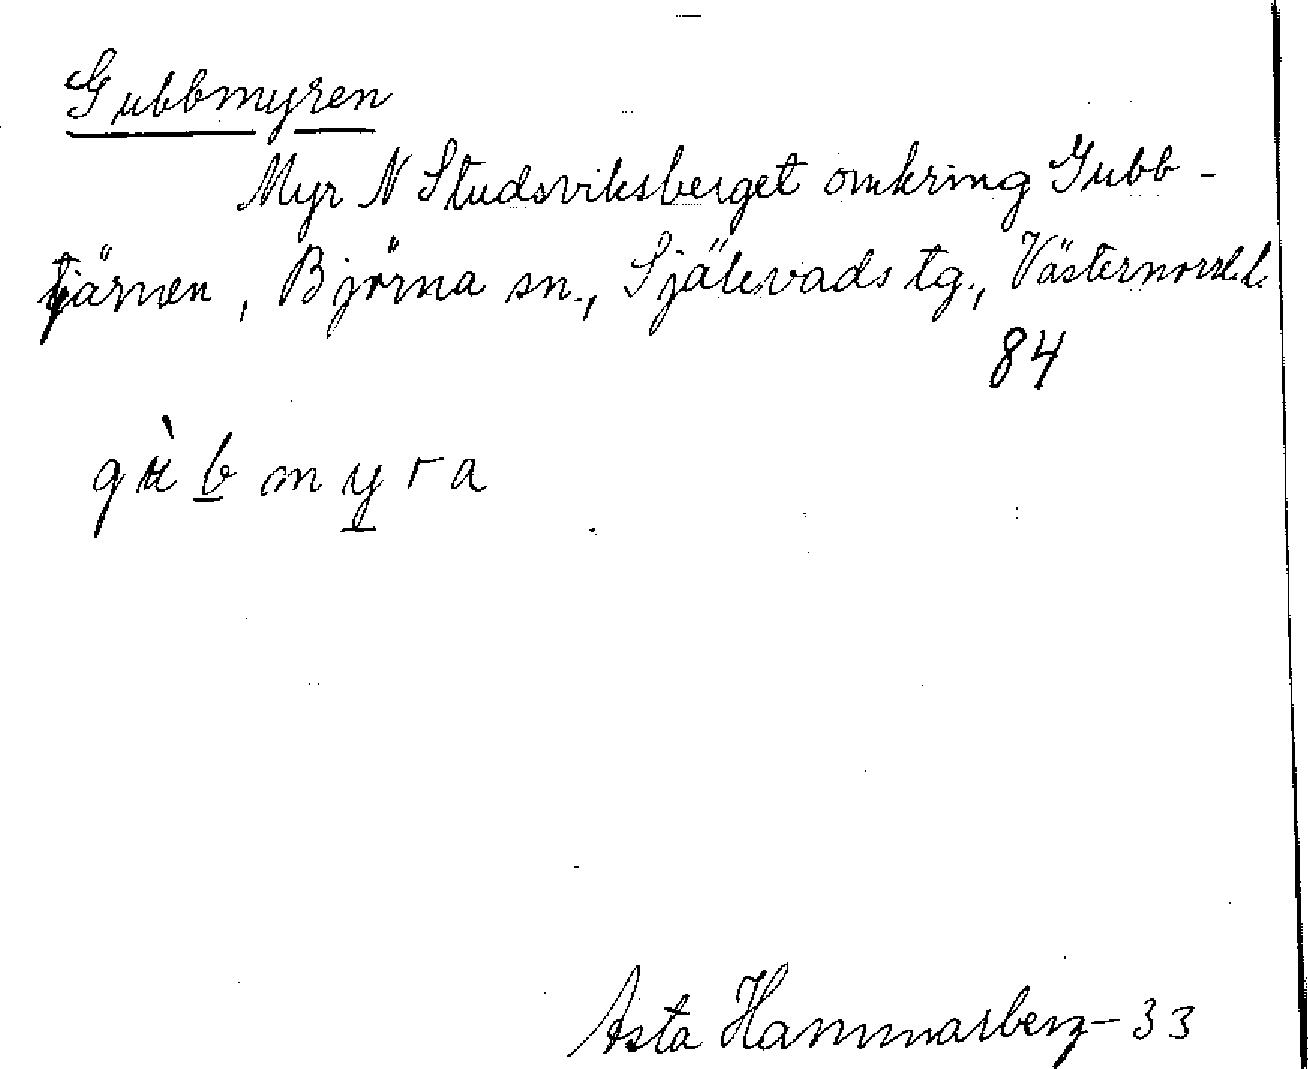 Gubbmyren
Myr N Studsviksberget omkring Gubb-
tjärnen, Björna sn., Själevads tg., Västernorrl. l.
84
gùbmyra
Asta Hammarberg - 33